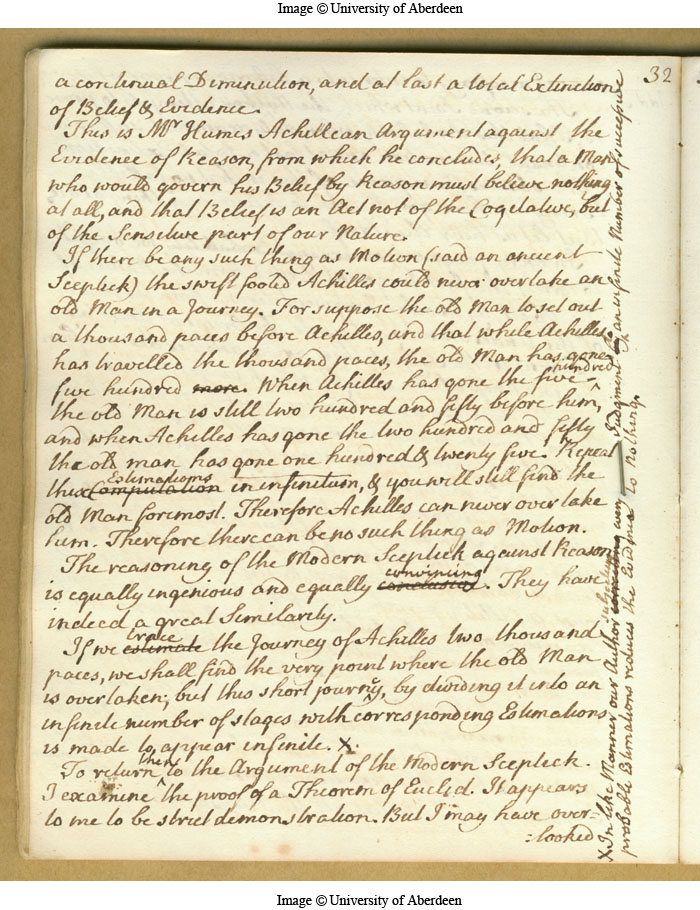 Image © University of Aberdeen
32
a continual Diminution, and at last a total Extinction
of Belief & Evidence.
This is Mr Humes Achillean Argument against the
Evidence of Reason, from which he concludes, that a Man
who would govern his Belief by Reason must believe nothing
at all, and that Belief is an Act not of the Cogitative, but
of the Sensitive part of our Nature.
If there be any such thing as Motion (said an ancient
Sceptick) the swift footed Achilles could never overtake an
old Man in a Journey. For suppose the old Man to set out
a thousand paces before Achilles, and that while Achilles
has travelled the thousand paces, the old Man has gone
five hundred more. When Achilles has gone the five hundred
the old Man is still two hundred and fifty before him,
and when Achilles has gone the two hundred and fifty
the old man has gone one hundred & twenty five. Repeat
these Computation Estimations in infinitum, & you will still find the
old Man foremost. Therefore Achilles can never over take
him. Therefore there can be no such thing as Motion.
The reasoning of the Modern Sceptick against Reason
is equally ingenious and equally conclusive convincing. They have
indeed a great Similarity.
If we estimate trace the Journey of Achilles two thousand
paces, we shall find the very point where the old Man
is overtaken; but this short journey, by dividing it into an
infinite number of stages with corresponding Estimations
is made to appear infinite. X
To return then to the Argument of the Modern Sceptick.
I examine the proof of a Theorem of Euclid. It appears
to me to be strict demonstration. But I may have over=
=looked
X In like Manner our Author subjecting every Judgment to an infinite Number of successive
probable Estimations reduces the Evidence to Nothing.
Image © University of Aberdeen